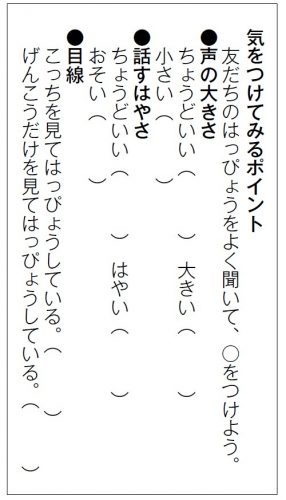 気をつけてみるポイント
友だちのはっぴょうをよく聞いて、○をつけよう。
●声の大きさ
ちょうどいい（　　）　大きい（　　）
小さい（　　）
●話すはやさ
ちょうどいい（　　）　はやい（　　）
おそい（　　）
●目線
こっちを見てはっぴょうしている。（　　）
げんこうだけを見てはっぴょうしている。（　　）